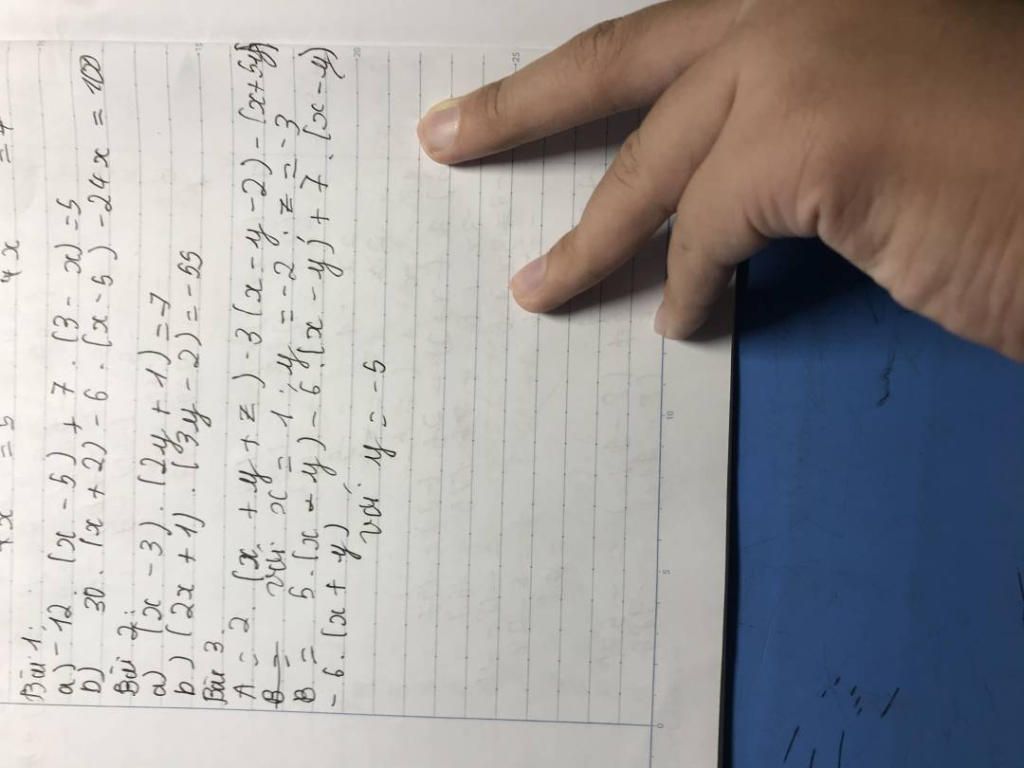 4x = 5 4x = 4
Bài 1:
a) - 12. (x - 5) + 7. (3 - x) = 5
b) 30. (x + 2) - 6. (x - 5) - 24x = 100
Bài 2:
a) (x - 3). (2y + 1) = 7
b) (2x + 1). (3y - 2) = - 55
Bài 3
A = 2 (x + y + z) - 3 (x - y - 2) - (x + 5y)
B = với x = 1; y = - 2; z = - 3
B = 5. (x - y) - 6. (x - y) + 7. (x - y)
- 6. (x + y)
với y = - 5
5
10
-15
-20
-25